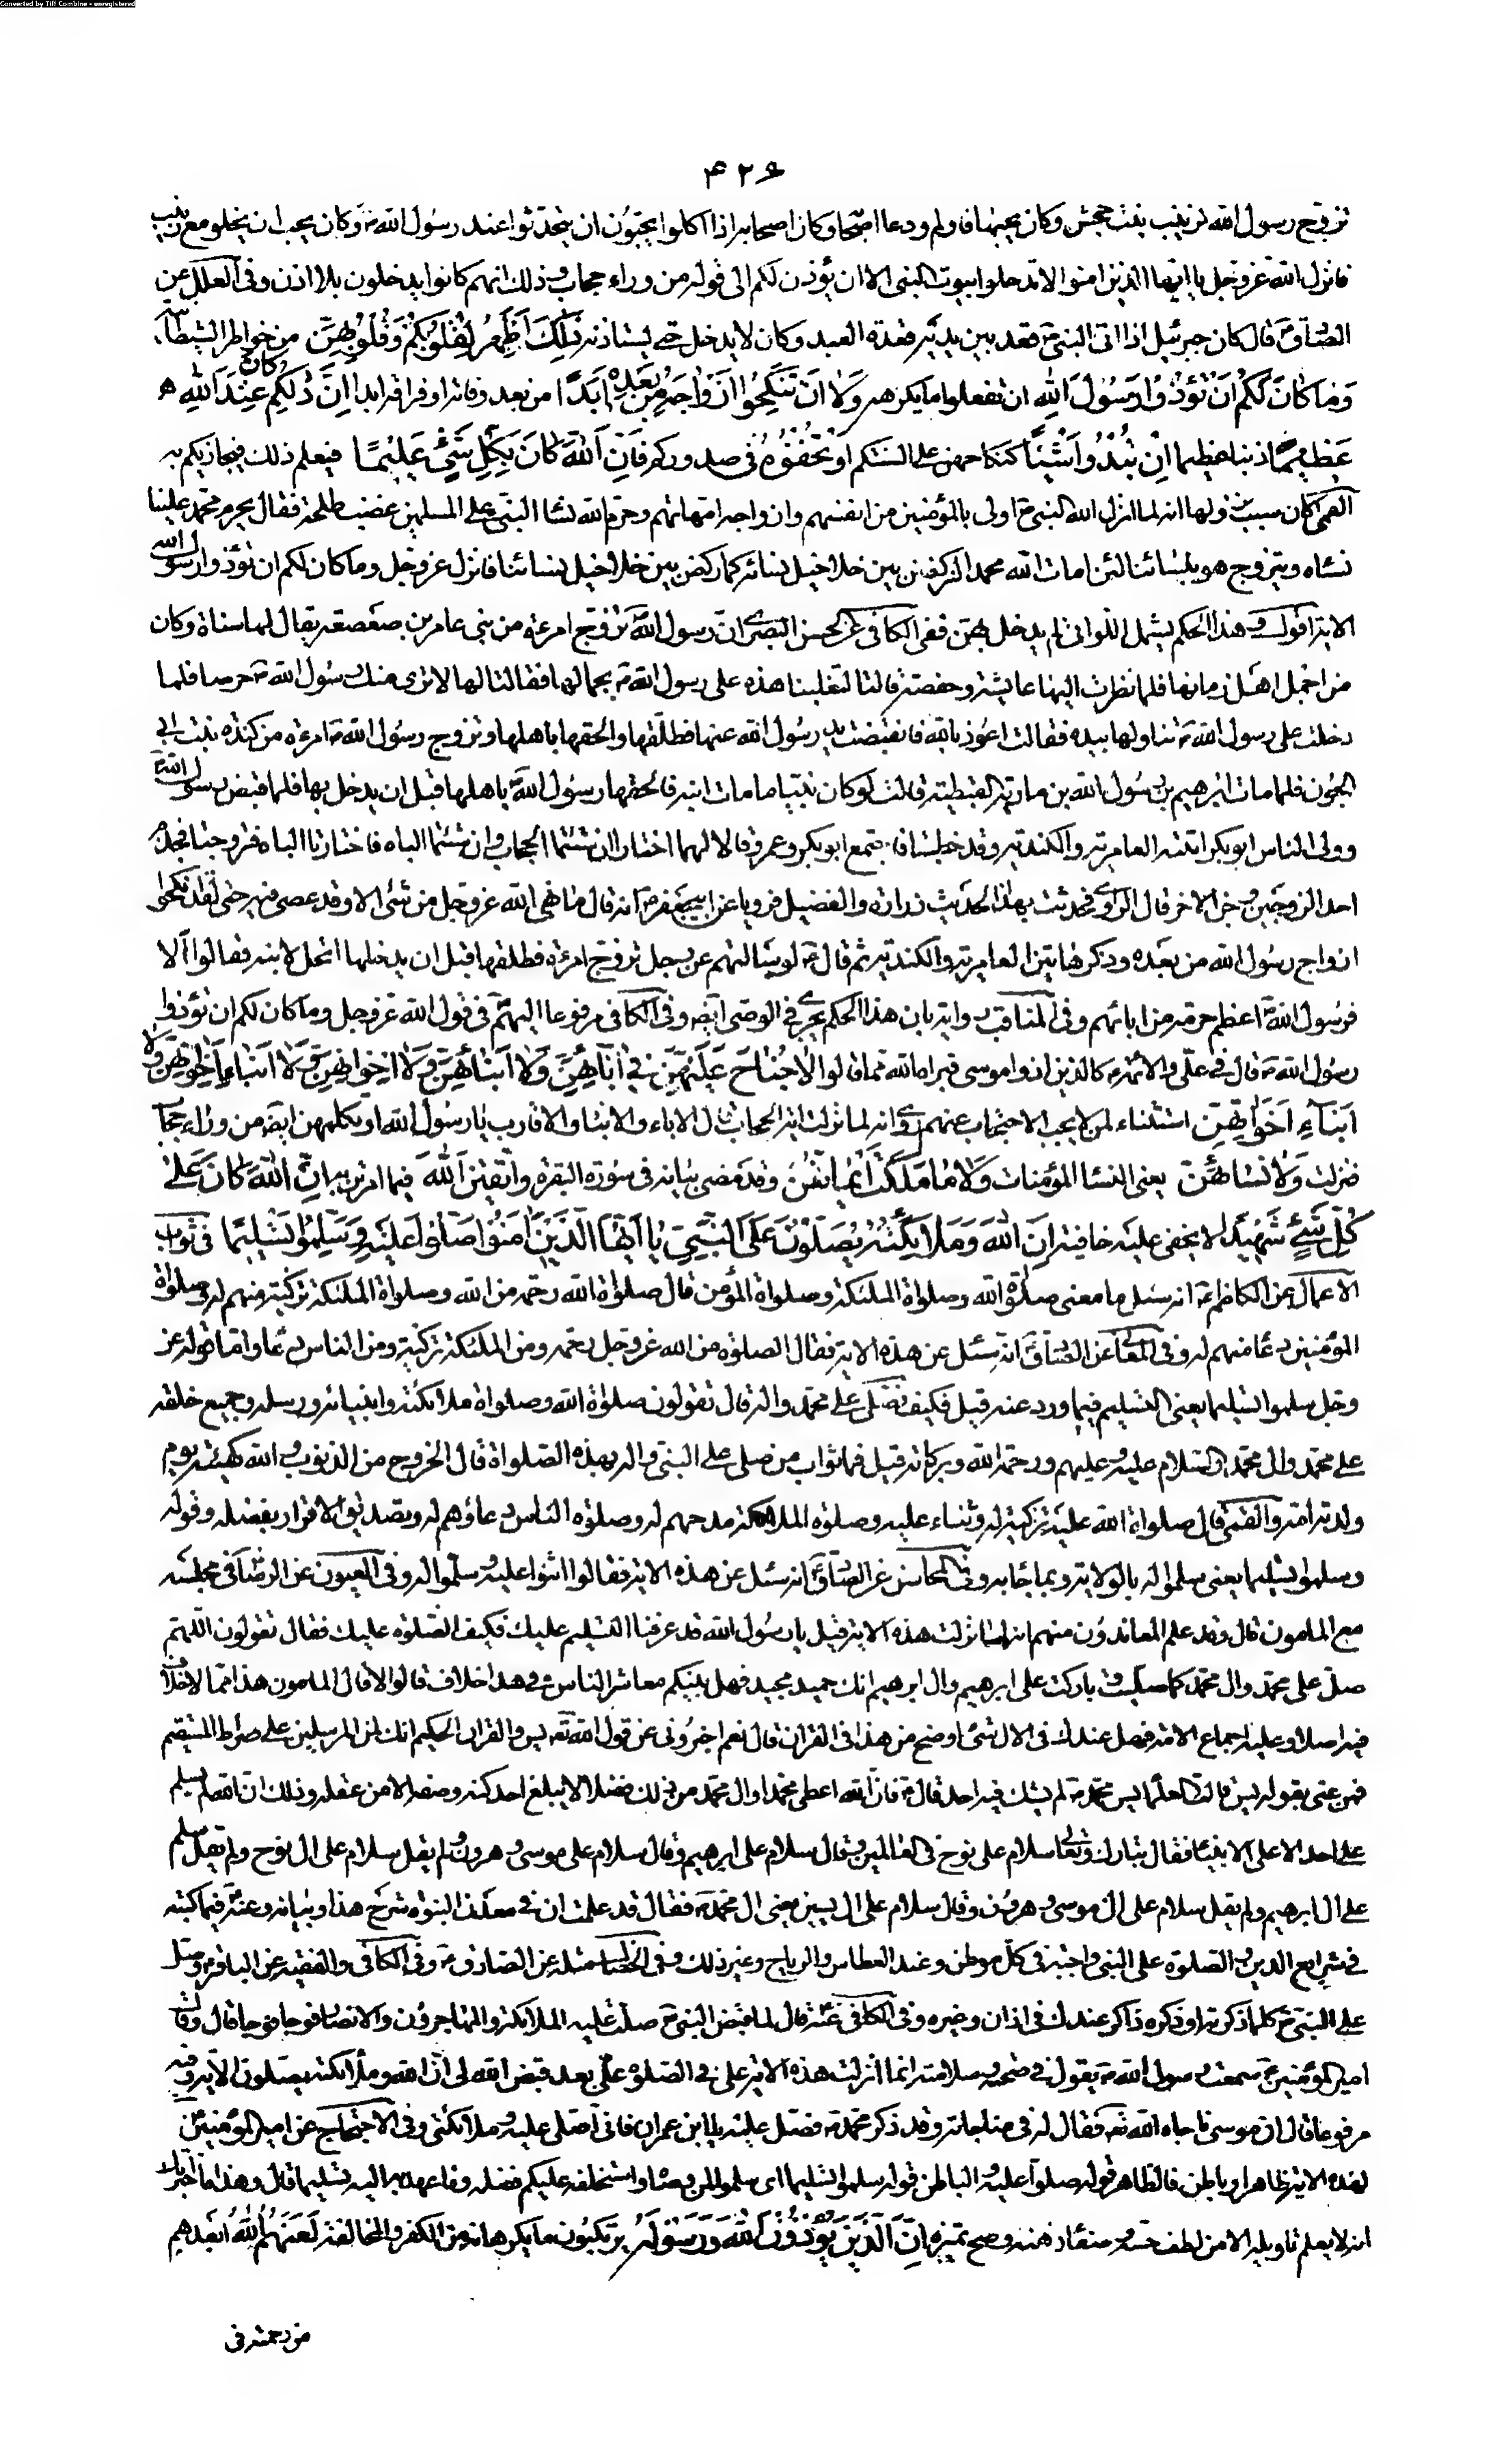 Converted by Tiff Combine - unregistered
۴۲۶
تزوج رسول الله زينب بنت جحش وكان يحبها فاولم ودعا اصحابه وكان اصحابه اذا اكلوا يحبون ان يتحدثوا عند رسول الله ص وكان يحب ان يخلو مع زينب
فانزل الله عز وجل يا ايها الذين امنوا لا تدخلوا بيوت النبى الا ان يؤذن لكم الى قوله من وراء حجاب وذلك انهم كانوا يدخلون بلا اذن وفى العلل عن
الصادق ع قال كان جبرئيل اذا اتى النبى ص قعد بين يديه قعدة العبد وكان لا يدخل حتى يستاذنه ذٰلِكُمْ اَطْهَرُ لِقُلُوبِكُمْ وَقُلُوبِهِنَّ من خواطر الشيطان
وَمَا كَانَ لَكُمْ اَنْ تُؤْذُوا رَسُولَ اللهِ ان تفعلوا ما يكرهه وَلَا اَنْ تَنْكِحُوا اَزْوَاجَهُ مِنْ بَعْدِهِ اَبَدًا من بعد وفاته او فراقه ابدا اِنَّ ذٰلِكُمْ كَانَ عِنْدَ اللهِ
عَظِيمًا ذنبا عظيما اِنْ تُبْدُوا شَيْئًا كنكاحهن على السنتكم اَوْ تُخْفُوهُ فى صدوركم فَاِنَّ اللهَ كَانَ بِكُلِّ شَيْءٍ عَلِيمًا فيعلم ذلك فيجازيكم به
القمى كان سبب نزولها انه لما انزل الله النبى اولى بالمؤمنين من انفسهم وازواجه امهاتهم وحرم الله نساء النبى على المسلمين غضب طلحة فقال يحرم محمد علينا
نساءه ويتزوج هو بنسائنا لئن امات الله محمدا لنركضن بين خلاخيل نسائه كما ركض بين خلاخيل نسائنا فانزل عز وجل وما كان لكم ان تؤذوا رسول الله
الاية اقول وهذا الحكم يشمل اللواتى لم يدخل بهن ففى الكافى عن الحسن البصرى ان رسول الله تزوج امرءة من بنى عامر بن صعصعة يقال لها سناة وكان
من اجمل اهل زمانها فلما نظرت اليها عايشة وحفصة قالتا لتغلبنا هذه على رسول الله ص بجمالها فقالتا لها لا يرى منك رسول الله ص حرصا فلما
دخلت على رسول الله ص تناولها بيده فقالت اعوذ بالله فانقبضت يد رسول الله عنها فطلقها والحقها باهلها وتزوج رسول الله ص امرءة من كندة بنت ابى
الجون فلما مات ابرهيم بن رسول الله بن مارية القبطية قالت لو كان نبيا ما مات ابنه فالحقها رسول الله باهلها قبل ان يدخل بها فلما قبض رسول الله
وولى الناس ابو بكر اتته العامرية والكندية وقد خطبتا فاجتمع ابو بكر وعمر وقالا لهما اختارا ان شئتما الحجاب وان شئتما الباه فاختارتا الباه فتزوجتا فجذم
احد الزوجين وجن الاخر قال الراوى فحدثت بهذا الحديث زرارة والفضيل فرويا عن ابى جعفر ع انه قال ما نهى الله عز وجل من شئ الا وقد عصى فيه حتى لقد نكحوا
ازواج رسول الله من بعده وذكر هاتين العامرية والكندية ثم قال ع لو سئالتهم عن رجل تزوج امرءة فطلقها قبل ان يدخل بها اتحل لابنه لقالوا لا
فرسول الله اعظم حرمة من ابائهم وفى المناقب رواية بان هذا الحكم يجرى فى الوصى ايضا وفى الكافى مرفوعا اليهم فى قول الله عز وجل وما كان لكم ان تؤذوا
رسول الله ص قال فى على والائمة ع كالذين اذوا موسى فبراه الله مما قالوا لَا جُنَاحَ عَلَيْهِنَّ فِي اٰبَائِهِنَّ وَلَا اَبْنَائِهِنَّ وَلَا اِخْوَانِهِنَّ وَلَا اَبْنَاءِ اِخْوَانِهِنَّ وَلَا
اَبْنَاءِ اَخَوَاتِهِنَّ استثناء لمن لا يجب الاحتجاب عنهم روى انه لما نزلت اية الحجاب قال الاباء والابناء والاقارب يا رسول الله او نكلمهن ايضا من وراء حجاب
فنزلت وَلَا نِسَائِهِنَّ يعنى النساء المؤمنات وَلَا مَا مَلَكَتْ اَيْمَانُهُنَّ وقد مضى بيانه فى سورة البقرة وَاتَّقِينَ اللهَ فيما امرتن به اِنَّ اللهَ كَانَ عَلٰى
كُلِّ شَيْءٍ شَهِيدًا لا يخفى عليه خافية اِنَّ اللهَ وَمَلَائِكَتَهُ يُصَلُّونَ عَلَى النَّبِيِّ يَا اَيُّهَا الَّذِينَ اٰمَنُوا صَلُّوا عَلَيْهِ وَسَلِّمُوا تَسْلِيمًا فى ثواب
الاعمال عن الكاظم ع انه سئل ما معنى صلوة الله وصلواة الملئكة وصلواة المؤمن قال صلواة الله رحمة من الله وصلواة الملئكة تزكية منهم له وصلواة
المؤمنين دعا منهم له وفى المعانى عن الصادق انه سئل عن هذه الاية فقال الصلوة من الله عز وجل رحمة ومن الملئكة تزكية ومن الناس دعاء واما قوله عز
وجل سلموا تسليما يعنى التسليم فيما ورد عنه قيل فكيف نصلى على محمد واله قال تقولون صلواة الله وصلواة ملائكته وانبيائه ورسله وجميع خلقه
على محمد وال محمد والسلام عليه وعليهم ورحمة الله وبركاته قيل فما ثواب من صلى على النبى واله بهذه الصلواة قال الخروج من الذنوب والله كهيئته يوم
ولدته امه والقمى قال صلواة الله عليه تزكية له وثناء عليه وصلوة الملائكة مدحهم له وصلوة الناس دعاؤهم له وتصديق والاقرار بفضله وقوله
وسلموا تسليما يعنى سلموا له بالولاية وبما جاء به وفى المحاسن عن الصادق ع انه سئل عن هذه الاية فقالوا اثنوا عليه وسلموا له وفى العيون عن الرضا فى مجلسه
مع المامون قال وقد علم المعاندون منهم انه لما نزلت هذه الاية قيل يا رسول الله قد عرفنا التسليم عليك فكيف الصلوة عليك فقال تقولون اللهم
صل على محمد وال محمد كما صليت وباركت على ابرهيم وال ابرهيم انك حميد مجيد فهل بينكم معاشر الناس فى هذا خلاف قالوا لا قال المامون هذا مما لا خلاف
فيه اصلا وعليه اجماع الامة فهل عندك فى الال شئ اوضح من هذا فى القران قال نعم اخبرونى عن قول الله تعه يس والقران الحكيم انك لمن المرسلين على صراط مستقيم
فمن عنى بقوله يس قالت العلماء يس محمد ص لم يشك فيه احد قال ع فان الله اعطى محمدا وال محمد من ذلك فضلا لا يبلغ احد كنه وصفه الا من عقله وذلك ان الله لم يسلم
على احد الا على الانبياء فقال تبارك وتعالى سلام على نوح فى العالمين وقال سلام على ابرهيم وقال سلام على موسى وهرون ولم يقل سلام على ال نوح ولم يقل سلام
على ال ابرهيم ولم يقل سلام على ال موسى وهرون وقال سلام على ال يسين يعنى ال محمد ص فقال قد علمت ان فى معدن النبوة شرح هذا وبيانه وعنه ع فيما كتبه
فى شرايع الدين والصلوة على النبى واجبة فى كل موطن وعند العطاس والرياح وغير ذلك وفى الخصال مثله عن الصادق ع وفى الكافى والفقيه عن الباقر ع وصل
على النبى ص كلما ذكرته او ذكره ذاكر عندك فى اذان وغيره وفى الكافى عنه قال لما قبض النبى ص صلت عليه الملائكة والمهاجرون والانصار فوجا فوجا قال وقال
امير المؤمنين ع سمعت رسول الله ص يقول فى صحته وسلامته انما انزلت هذه الاية على فى الصلوة على بعد قبض الله لى ان الله وملائكته يصلون الاية وفيه
مرفوعا قال ان موسى ناجاه الله تعه فقال له فى مناجاته وقد ذكر محمد ص فصل عليه يا ابن عمران فانى اصلى عليه وملائكتى وفى الاحتجاج عن امير المؤمنين
لهذه الاية ظاهر وباطن فالظاهر قوله صلوا عليه والباطن قوله سلموا تسليما اى سلموا لمن وصاه واستخلفه عليكم فضله وما عهد به اليه تسليما قال وهذا ما اخبرتك
انه لا يعلم تاويله الا من لطف حسه وصفا ذهنه وصح تميزه اِنَّ الَّذِينَ يُؤْذُونَ اللهَ وَرَسُولَهُ يرتكبون ما يكرهانه من الكفر والمخالفة لَعَنَهُمُ اللهُ ابعدهم
من رحمته فى